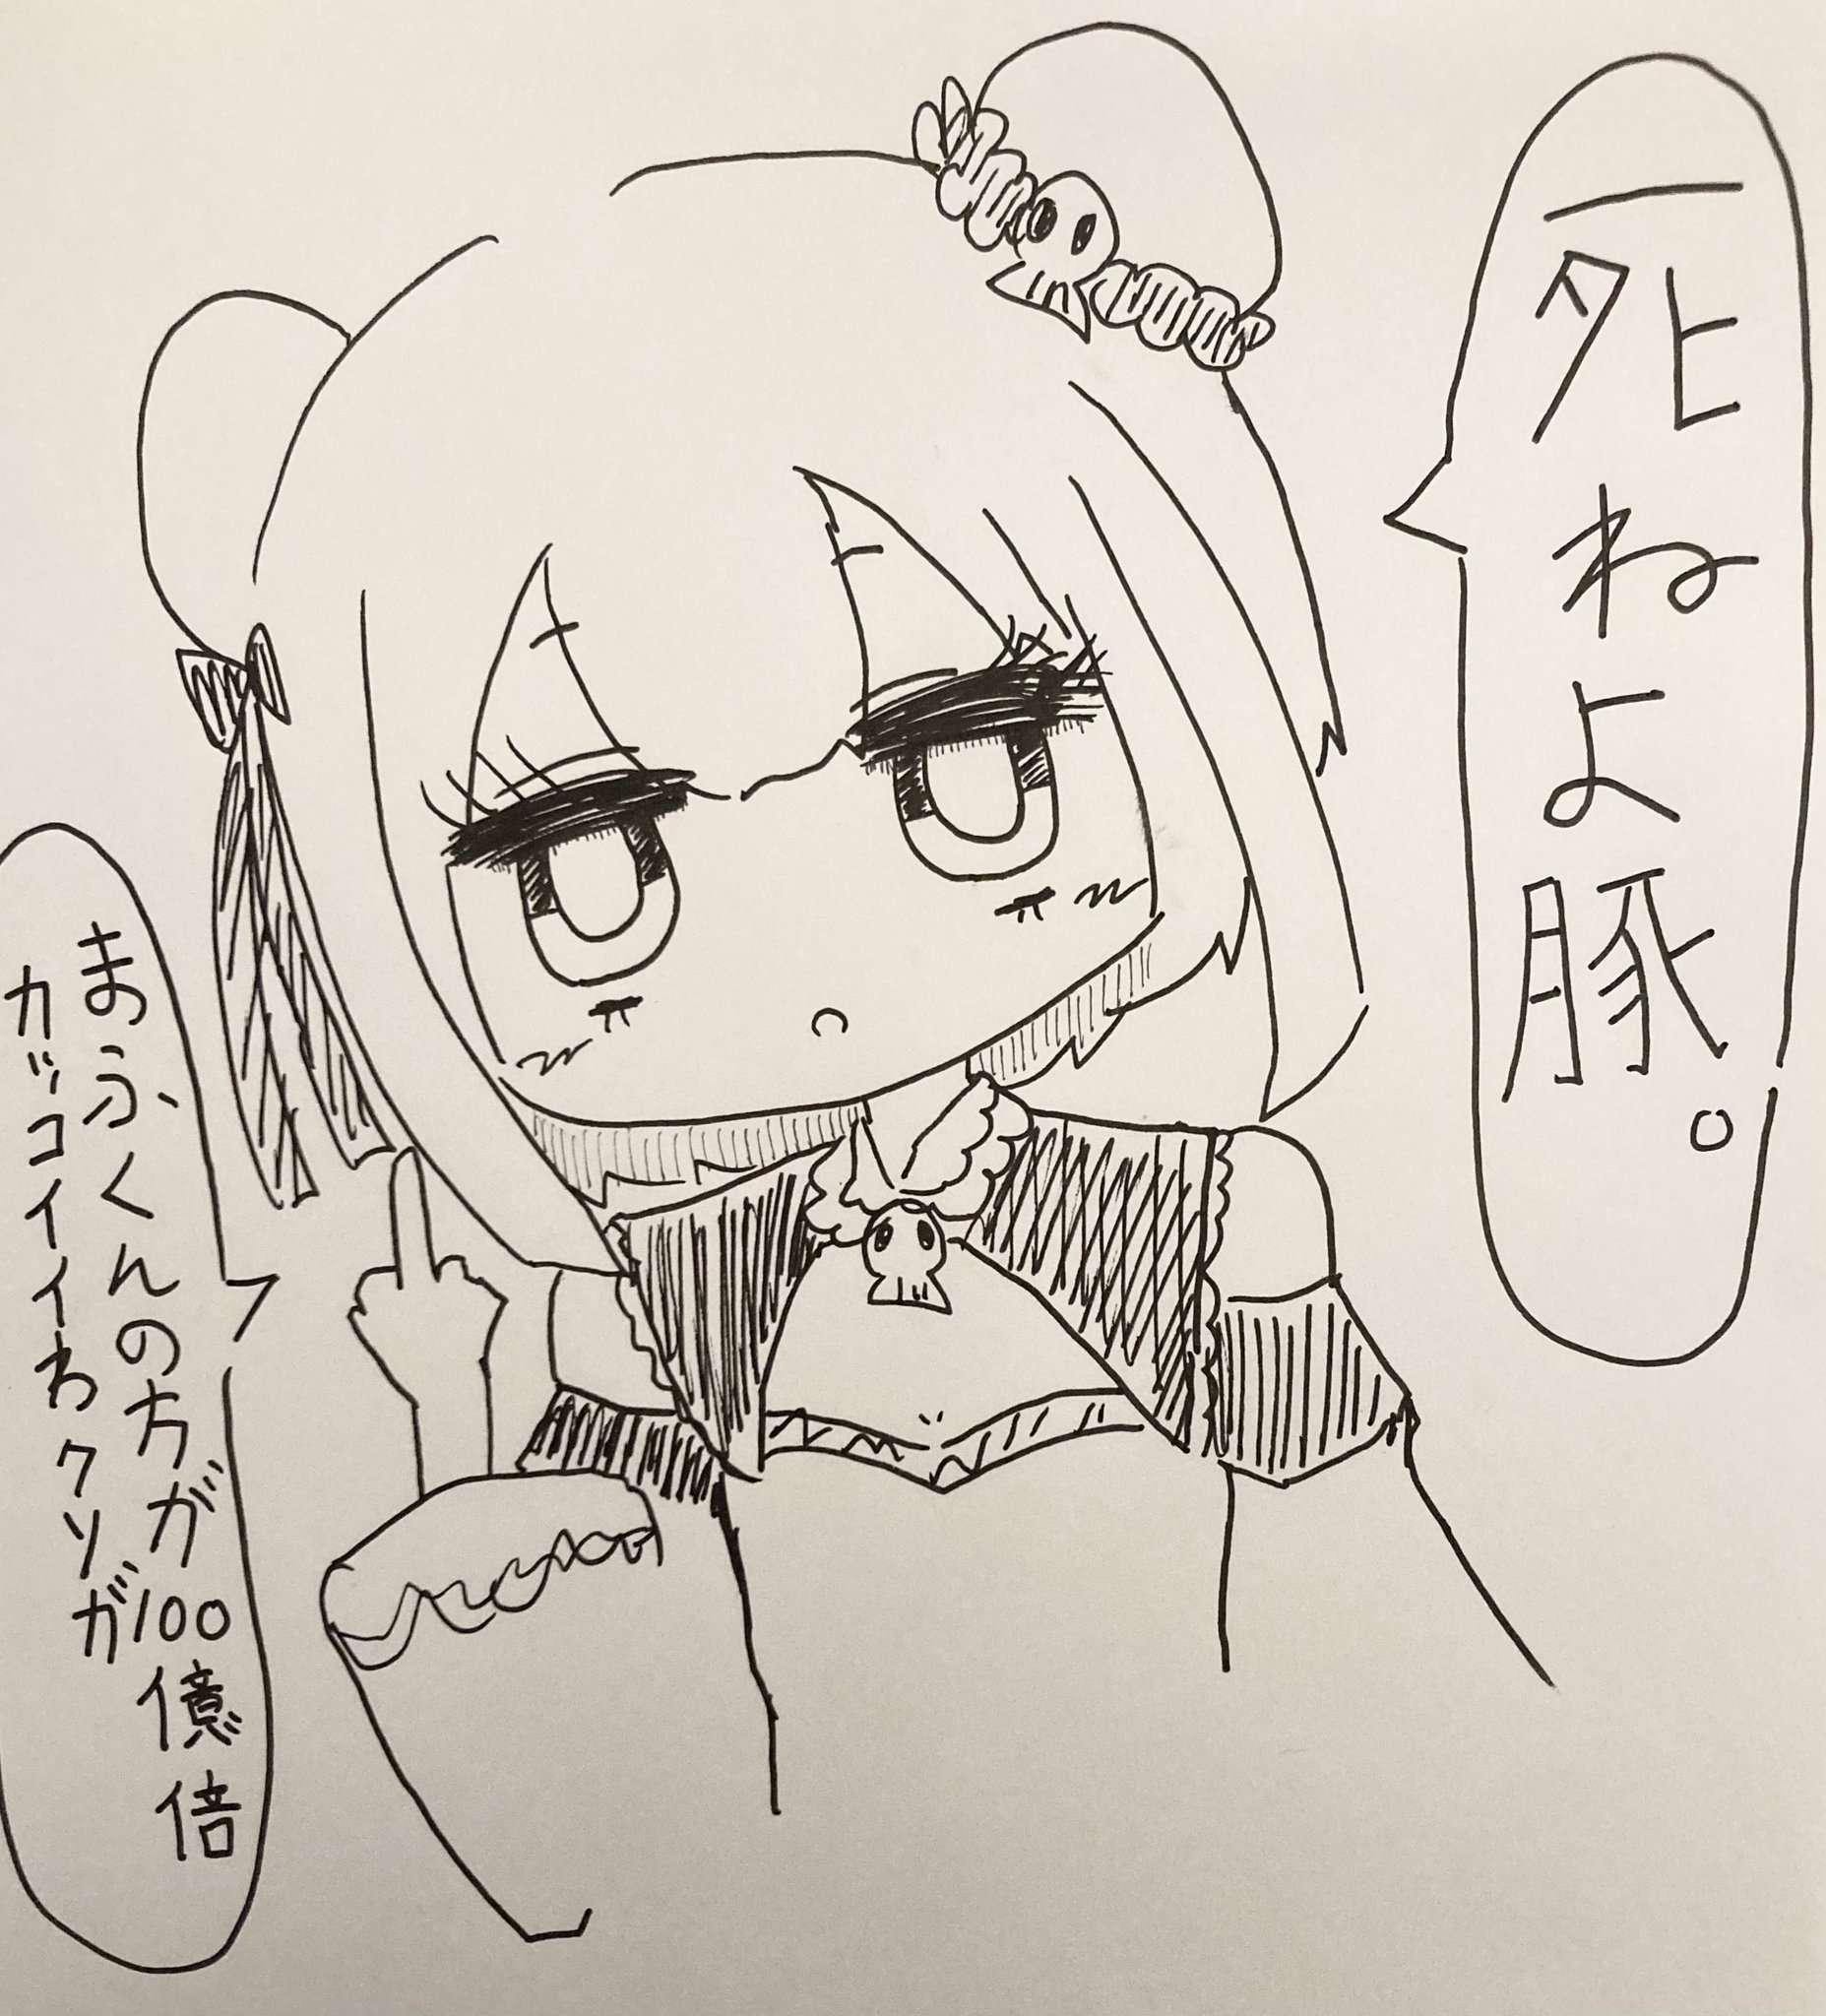 死ねよ豚。
まふくんの方が100億倍
ガッコイイわクソが